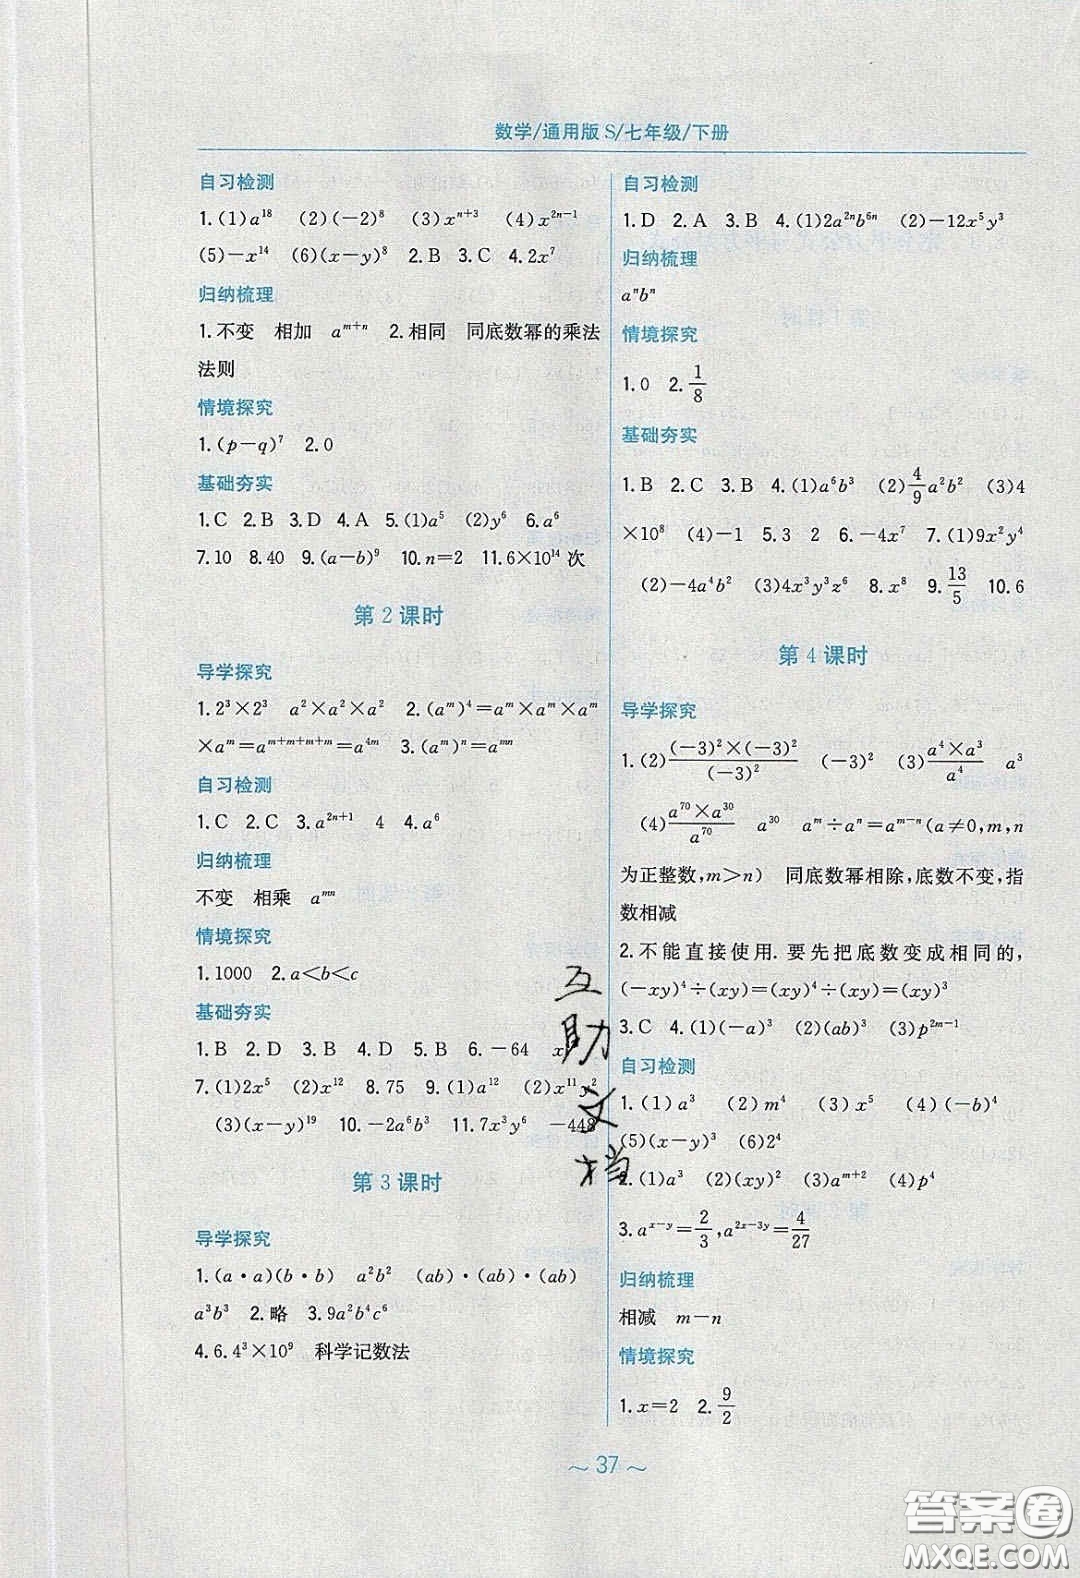 数学/通用版S/七年级/下册
自习检测
1.(1)a¹⁸ (2)(-2)⁸ (3)xⁿ⁺³ (4)x²ⁿ⁻¹
(5)-x¹⁴ (6)(x-y)⁸ 2.B 3.B 4.2x⁷
归纳梳理
1.不变 相加 aᵐ⁺ⁿ 2.相同 同底数幂的乘法
法则
情境探究
1.(p-q)⁷ 2.0
基础夯实
1.C 2.B 3.D 4.A 5.(1)a⁵ (2)y⁶ 6.a⁶
7.10 8.40 9.(a-b)⁹ 10.n=2 11.6×10¹⁴次
第2课时
导学探究
1.2³×2³ a²×a²×a² 2.(aᵐ)⁴=aᵐ×aᵐ×aᵐ
×aᵐ=aᵐ⁺ᵐ⁺ᵐ⁺ᵐ=a⁴ᵐ 3.(aᵐ)ⁿ=aᵐⁿ
自习检测
1.C 2.C 3.a²ⁿ⁺¹ 4 4.a⁶
归纳梳理
不变 相乘 aᵐⁿ
情境探究
1.1000 2.a<b<c
基础夯实
1.B 2.D 3.B 4.D 5.B 6.-64 x
7.(1)2x⁵ (2)x¹² 8.75 9.(1)a¹² (2)x¹¹y²
(3)(x-y)¹⁹ 10.-2a⁶b³ 11.7x³y⁶ -448
第3课时
导学探究
1.(a·a)(b·b) a²b² (ab)·(ab)·(ab)
a³b³ 2.略 3.9a²b⁴c⁶
4.6.4³×10⁹ 科学记数法
自习检测
1.D 2.A 3.B 4.(1)2a²ⁿb⁶ⁿ (2)-12x⁵y³
归纳梳理
aⁿbⁿ
情境探究
1.0 2.1/8
基础夯实
1.B 2.C 3.B 4.(1)a⁶b³ (2)4/9a²b² (3)4
×10⁸ (4)-1 5.3 2 6.-4x⁷ 7.(1)9x²y⁴
(2)-4a⁴b² (3)4x³y³z⁶ 8.x⁸ 9.13/5 10.6
第4课时
导学探究
1.(2)(-3)²×(-3)²/(-3)² (-3)² (3)a⁴×a³/a⁴ a³
(4)a⁷⁰×a³⁰/a⁷⁰ a³⁰ aᵐ÷aⁿ=aᵐ⁻ⁿ(a≠0,m,n
为正整数,m>n) 同底数幂相除,底数不变,指
数相减
2.不能直接使用.要先把底数变成相同的,
(-xy)⁴÷(xy)=(xy)⁴÷(xy)=(xy)³
3.C 4.(1)(-a)³ (2)(ab)³ (3)p²ᵐ⁻¹
自习检测
1.(1)a³ (2)m⁴ (3)x⁵ (4)(-b)⁴
(5)(x-y)³ (6)2⁴
2.(1)a³ (2)(xy)² (3)aᵐ⁺² (4)p⁴
3.aˣ⁻ʸ=2/3,a²ˣ⁻³ʸ=4/27
归纳梳理
相减 m-n
情境探究
1.x=2 2.9/2
互
助
文
档
~ 37 ~
答案圈
MXQE.COM